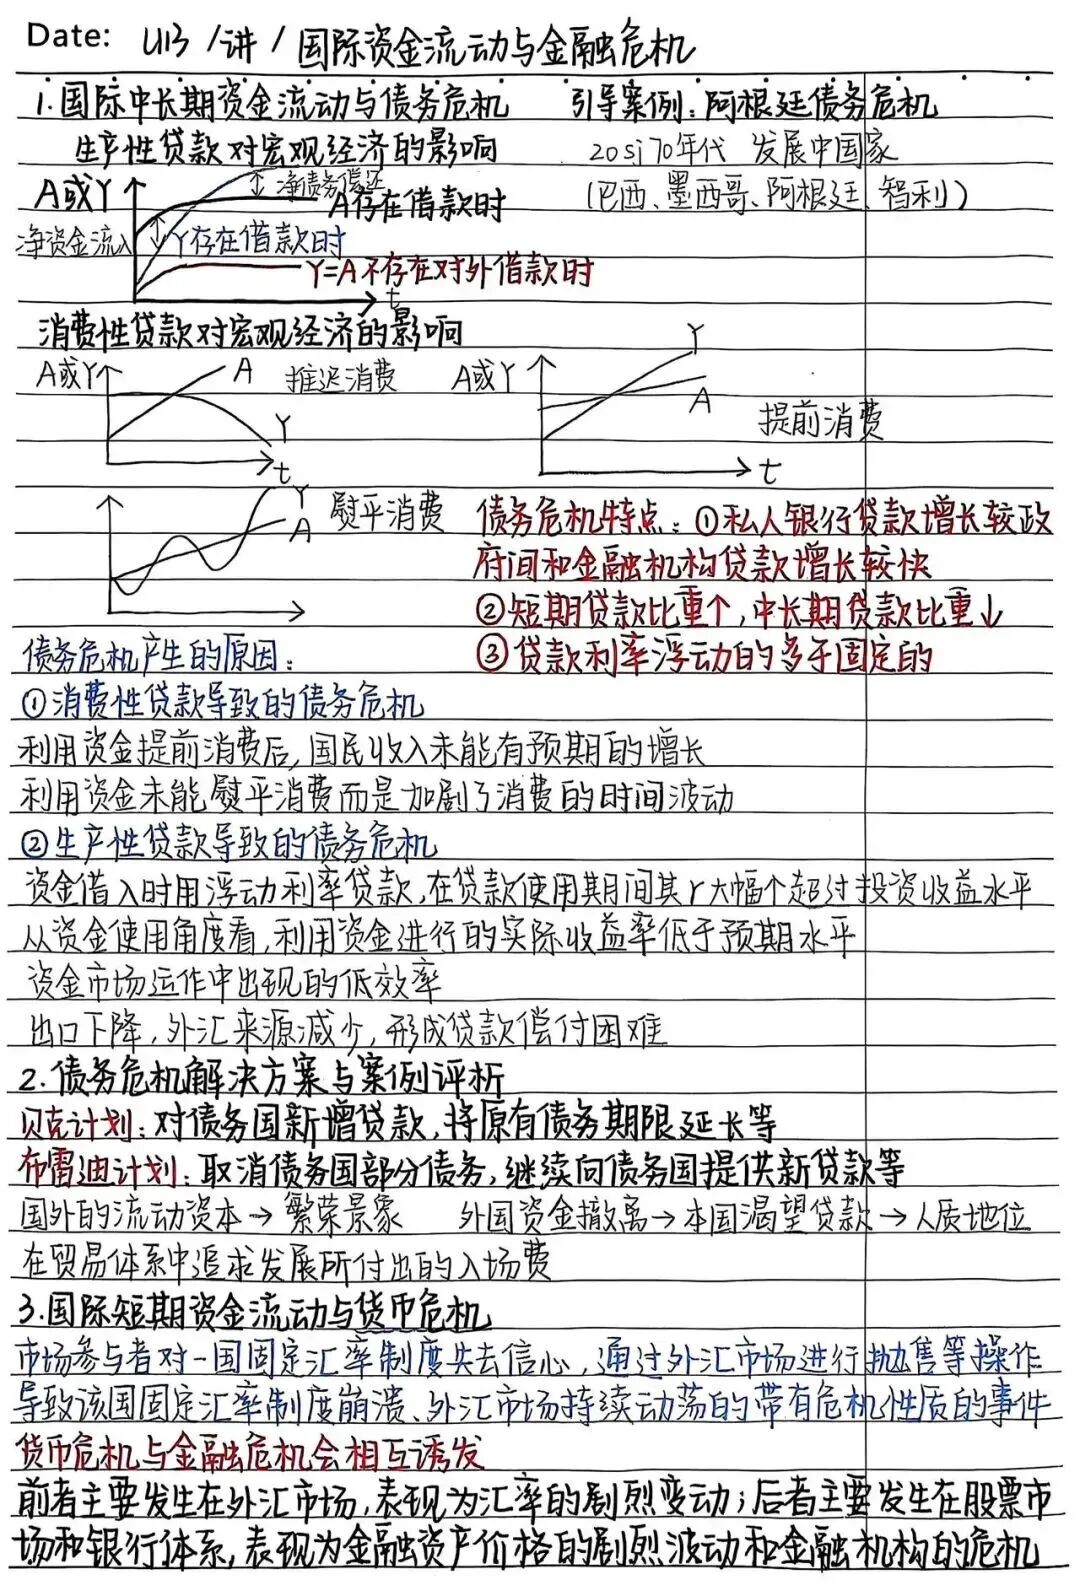 Date: U13 / 讲 / 国际资金流动与金融危机
1.国际中长期资金流动与债务危机 引导案例:阿根廷债务危机
生产性贷款对宏观经济的影响 20si70年代 发展中国家
(巴西、墨西哥、阿根廷、智利)
A或Y
净债务偿还
A存在借款时
净资金流入
Y存在借款时
Y=A不存在对外借款时
t
消费性贷款对宏观经济的影响
A或Y A 推迟消费
Y
t
A或Y Y
A
提前消费
t
Y
A
熨平消费
债务危机特点:①私人银行贷款增长较政
府间和金融机构贷款增长较快
②短期贷款比重个,中长期贷款比重↓
③贷款利率浮动的多于固定的
债务危机产生的原因:
①消费性贷款导致的债务危机
利用资金提前消费后,国民收入未能有预期的增长
利用资金未能熨平消费而是加剧了消费的时间波动
②生产性贷款导致的债务危机
资金借入时用浮动利率贷款,在贷款使用期间其r大幅个超过投资收益水平
从资金使用角度看,利用资金进行的实际收益率低于预期水平
资金市场运作中出现的低效率
出口下降,外汇来源减少,形成贷款偿付困难
2.债务危机解决方案与案例评析
贝克计划:对债务国新增贷款,将原有债务期限延长等
布雷迪计划:取消债务国部分债务,继续向债务国提供新贷款等
国外的流动资本→繁荣景象 外国资金撤离→本国渴望贷款→人质地位
在贸易体系中追求发展所付出的入场费
3.国际短期资金流动与货币危机
市场参与者对一国固定汇率制度失去信心,通过外汇市场进行抛售等操作
导致该国固定汇率制度崩溃、外汇市场持续动荡的带有危机性质的事件
货币危机与金融危机会相互诱发
前者主要发生在外汇市场,表现为汇率的剧烈变动;后者主要发生在股票市
场和银行体系,表现为金融资产价格的剧烈波动和金融机构的危机